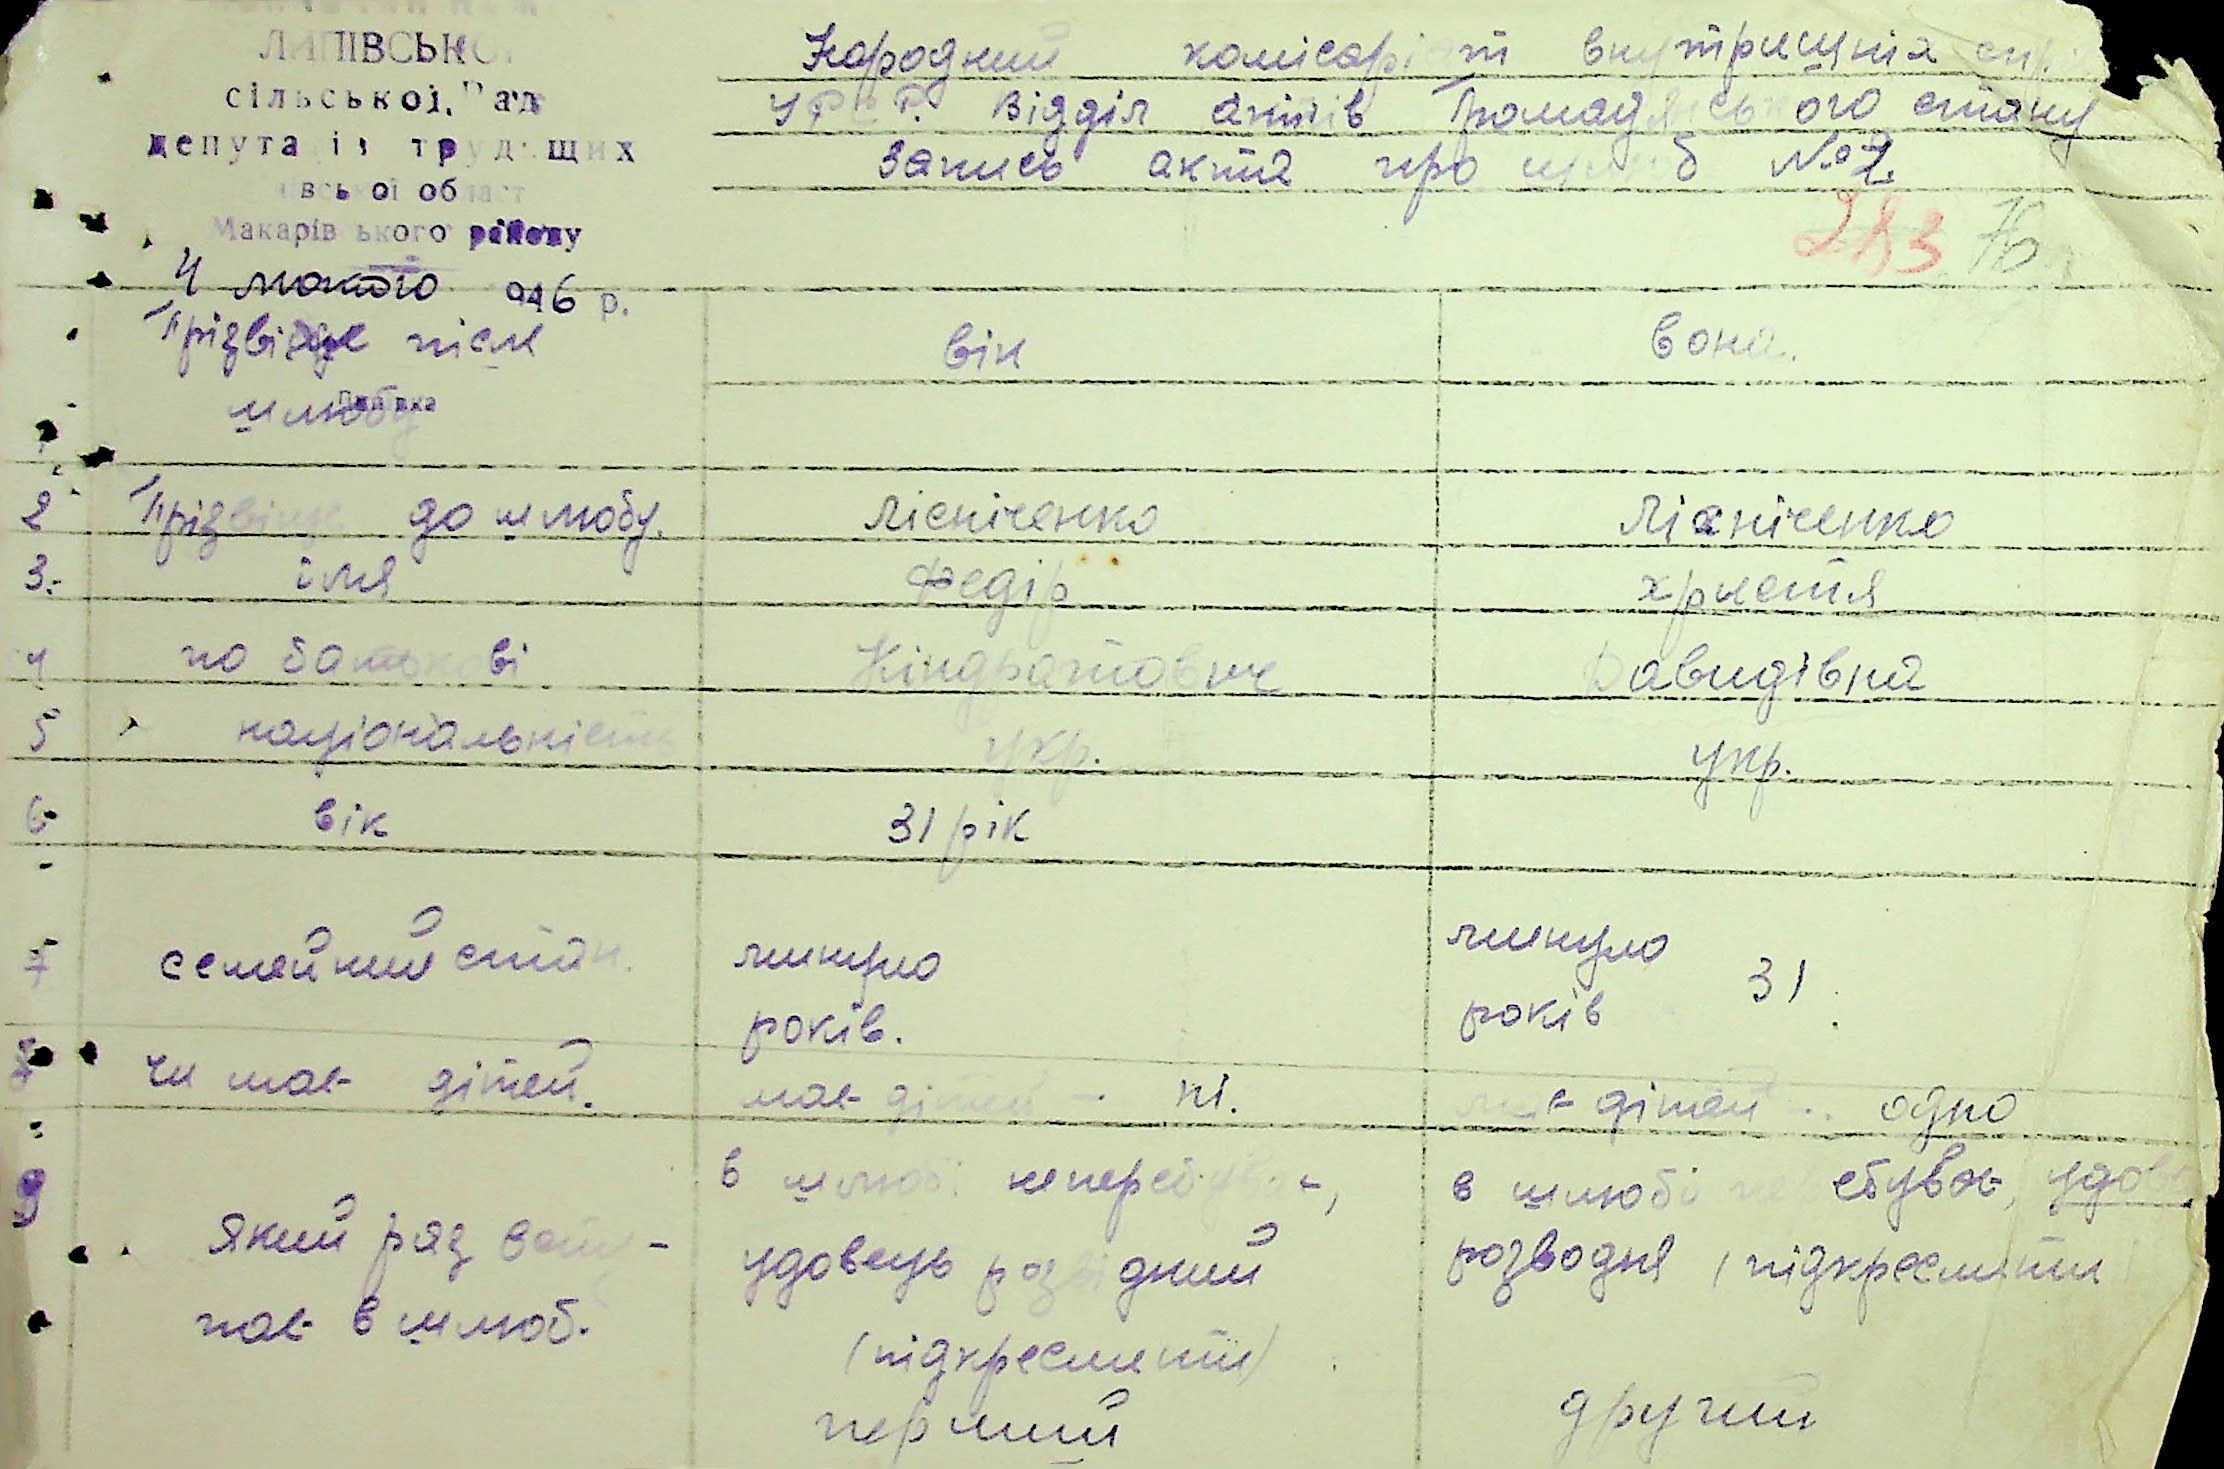 сільської Рад
депутатів трудящих
Макарівського району
4 лютого 946 р.
Народний комісаріат внутрішніх спр
УРСР. Відділ актів Громадянського стану
Запись акта про шлюб №2.
283
Прізвіще після
шлюбу
він
вона.
2 Прізвіще до шлюбу. Лісніченко Лісніченко
3. імя Федір христя
4 по батькові Кіндратович Давидівна
5 національність укр. укр.
6 вік 31 рік
7 семейний стан. минуло
років.
минуло
років 31
чи має дітей. має дітей - ні. має дітей - одно
9 Який раз всту-
пає в шлюб.
в шлюбі неперебуває,
удовець розвідний
(підкреслити)
перший
в шлюбі не ебуває, удова
розводня (підкреслити)
другий